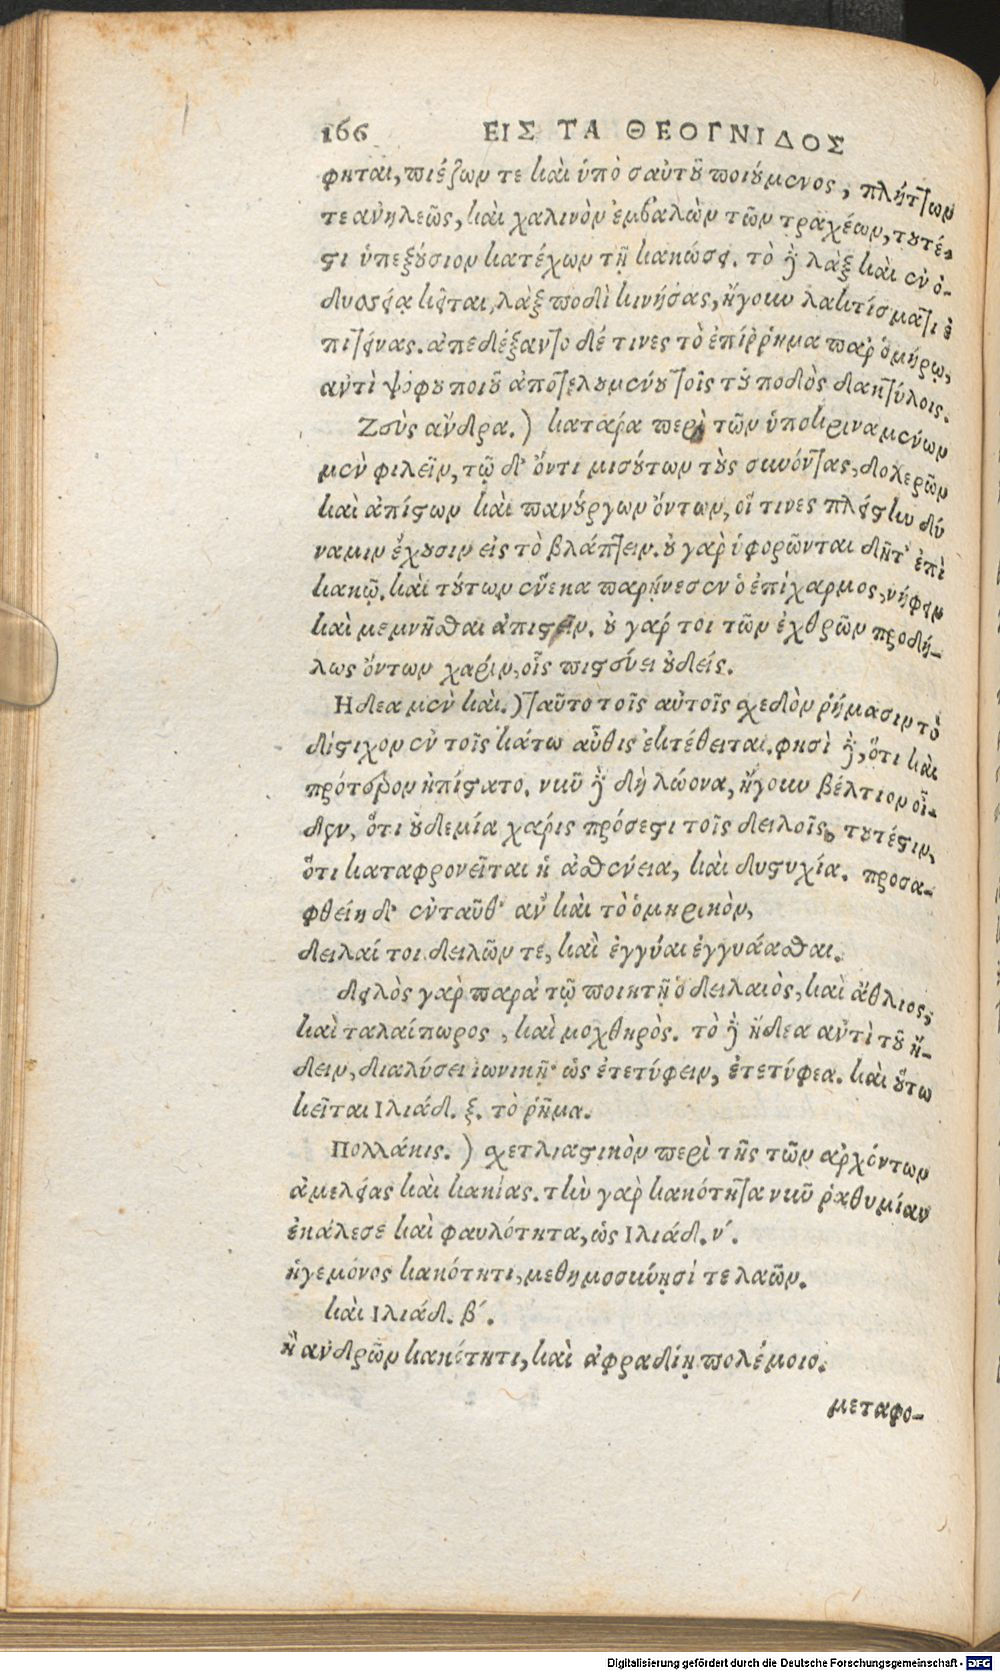 166 ΕΙΣ ΤΑ ΘΕΟΓΝΙΔΟΣ
φηται, πιέζων τε καὶ ὑπὸ σαυτοῦ ποιούμενος, πλήττων
τε ἀνηλεῶς, καὶ χαλινὸν ἐμβαλὼν τῶν τραχέων, τουτέ-
στι ὑπεξούσιον κατέχων τῇ κακώσει. τὸ δὲ λὰξ καὶ ἐν ὀ-
δυσσείᾳ κεῖται, λὰξ ποδὶ κινήσας, ἤγουν λακτίσματι ἐ
πιξήνας. ἀπεδέξαντο δέ τινες τὸ ἐπίῤῥημα παρ' ὁμήρῳ,
ἀντὶ ψόφου ποιοῦ ἀποτελουμένου τοῖς τοῦ ποδὸς δακτύλοις.
Ζεὺς ἄνδρα.) κατάρα περὶ τῶν ὑποκριναμένων
μὲν φιλεῖν, τῷ δ' ὄντι μισούτων τοὺς συνόντας, δολερῶν
καὶ ἀπίστων καὶ πανούργων ὄντων, οἵ τινες πλείστην δύ
ναμιν ἔχουσιν εἰς τὸ βλάπτειν. οὐ γὰρ ὑφορῶνται δῆτ' ἐπὶ
κακῷ. καὶ τούτων ἕνεκα παρῄνεσεν ὁ ἐπίχαρμος, νήφειν
καὶ μεμνῆσθαι ἀπιστεῖν. οὐ γάρ τοι τῶν ἐχθρῶν προδή-
λως ὄντων χάριν, οἷς πιστεύει οὐδείς.
Ηδεα μὲν καὶ.) ταῦτο τοῖς αὐτοῖς σχεδὸν ῥήμασιν τὸ
δίστιχον ἐν τοῖς κάτω αὖθις ἐκτέθειται. φησὶ δὲ, ὅτι καὶ
πρότερον ἠπίστατο. νῦν δὲ δὴ λώονα, ἤγουν βέλτιον οἶ-
δεν, ὅτι οὐδεμία χάρις πρόσεστι τοῖς δειλοῖς, τουτέστιν,
ὅτι καταφρονεῖται ἡ ἀσθένεια, καὶ δυστυχία. προσα-
φθείη δ' ἐνταῦθ' ἂν καὶ τὸ ὁμηρικὸν,
δειλαί τοι δειλῶν τε, καὶ ἐγγύαι ἐγγυάασθαι.
Δειλὸς γὰρ παρὰ τῷ ποιητῇ ὁ δειλαιὸς, καὶ ἄθλιος,
καὶ ταλαίπωρος, καὶ μοχθηρὸς. τὸ δὲ ᾔδεα ἀντὶ τοῦ ᾔ-
δειν, διαλύσει ἰωνικῇ· ὡς ἐτετύφειν, ἐτετύφεα. καὶ οὕτω
κεῖται Ιλιάδ. ξ. τὸ ῥῆμα.
Πολλάκις.) σχετλιαστικὸν περὶ τῆς τῶν ἀρχόντων
ἀμελείας καὶ κακίας. τὴν γὰρ κακότητα νῦν ῥαθυμίαν
ἐκάλεσε καὶ φαυλότητα, ὡς Ιλιάδ. ν'.
ἡγεμόνος κακότητι, μεθημοσύνῃσί τε λαῶν.
καὶ Ιλιάδ. β'.
ἢ ἀνδρῶν κακότητι, καὶ ἀφραδίῃ πολέμοιο.
μεταφο-
Digitalisierung gefördert durch die Deutsche Forschungsgemeinschaft - DFG